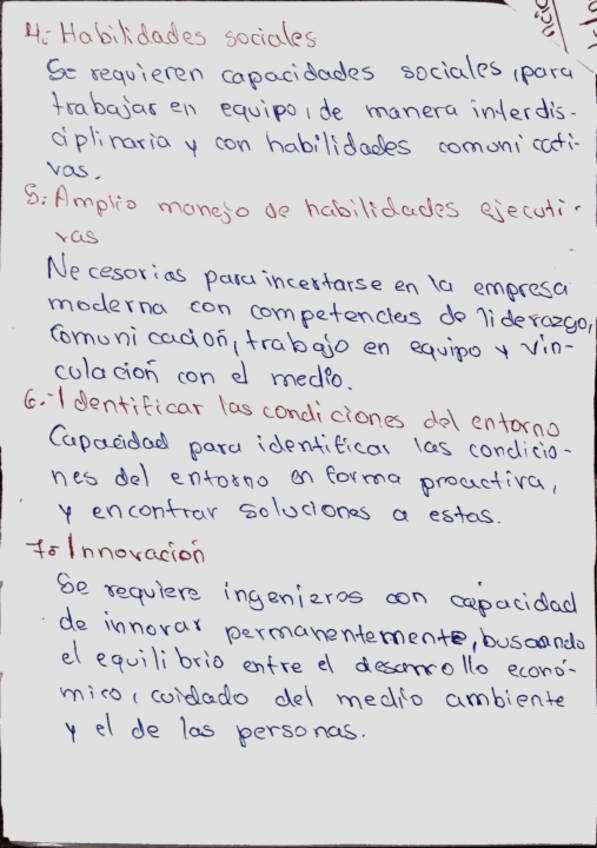 4.- Habilidades sociales
Se requieren capacidades sociales, para
trabajar en equipo, de manera interdis-
ciplinaria y con habilidades comunicati-
vas.
5.- Amplio manejo de habilidades ejecuti-
vas
Necesarias para incertarse en la empresa
moderna con competencias de liderazgo,
comunicación, trabajo en equipo y vin-
culación con el medio.
6.- Identificar las condiciones del entorno
Capacidad para identificar las condicio-
nes del entorno en forma proactiva,
y encontrar soluciones a estas.
7.- Innovación
Se requiere ingenieros con capacidad
de innovar permanentemente, buscando
el equilibrio entre el desarrollo econó-
mico, cuidado del medio ambiente
y el de las personas.